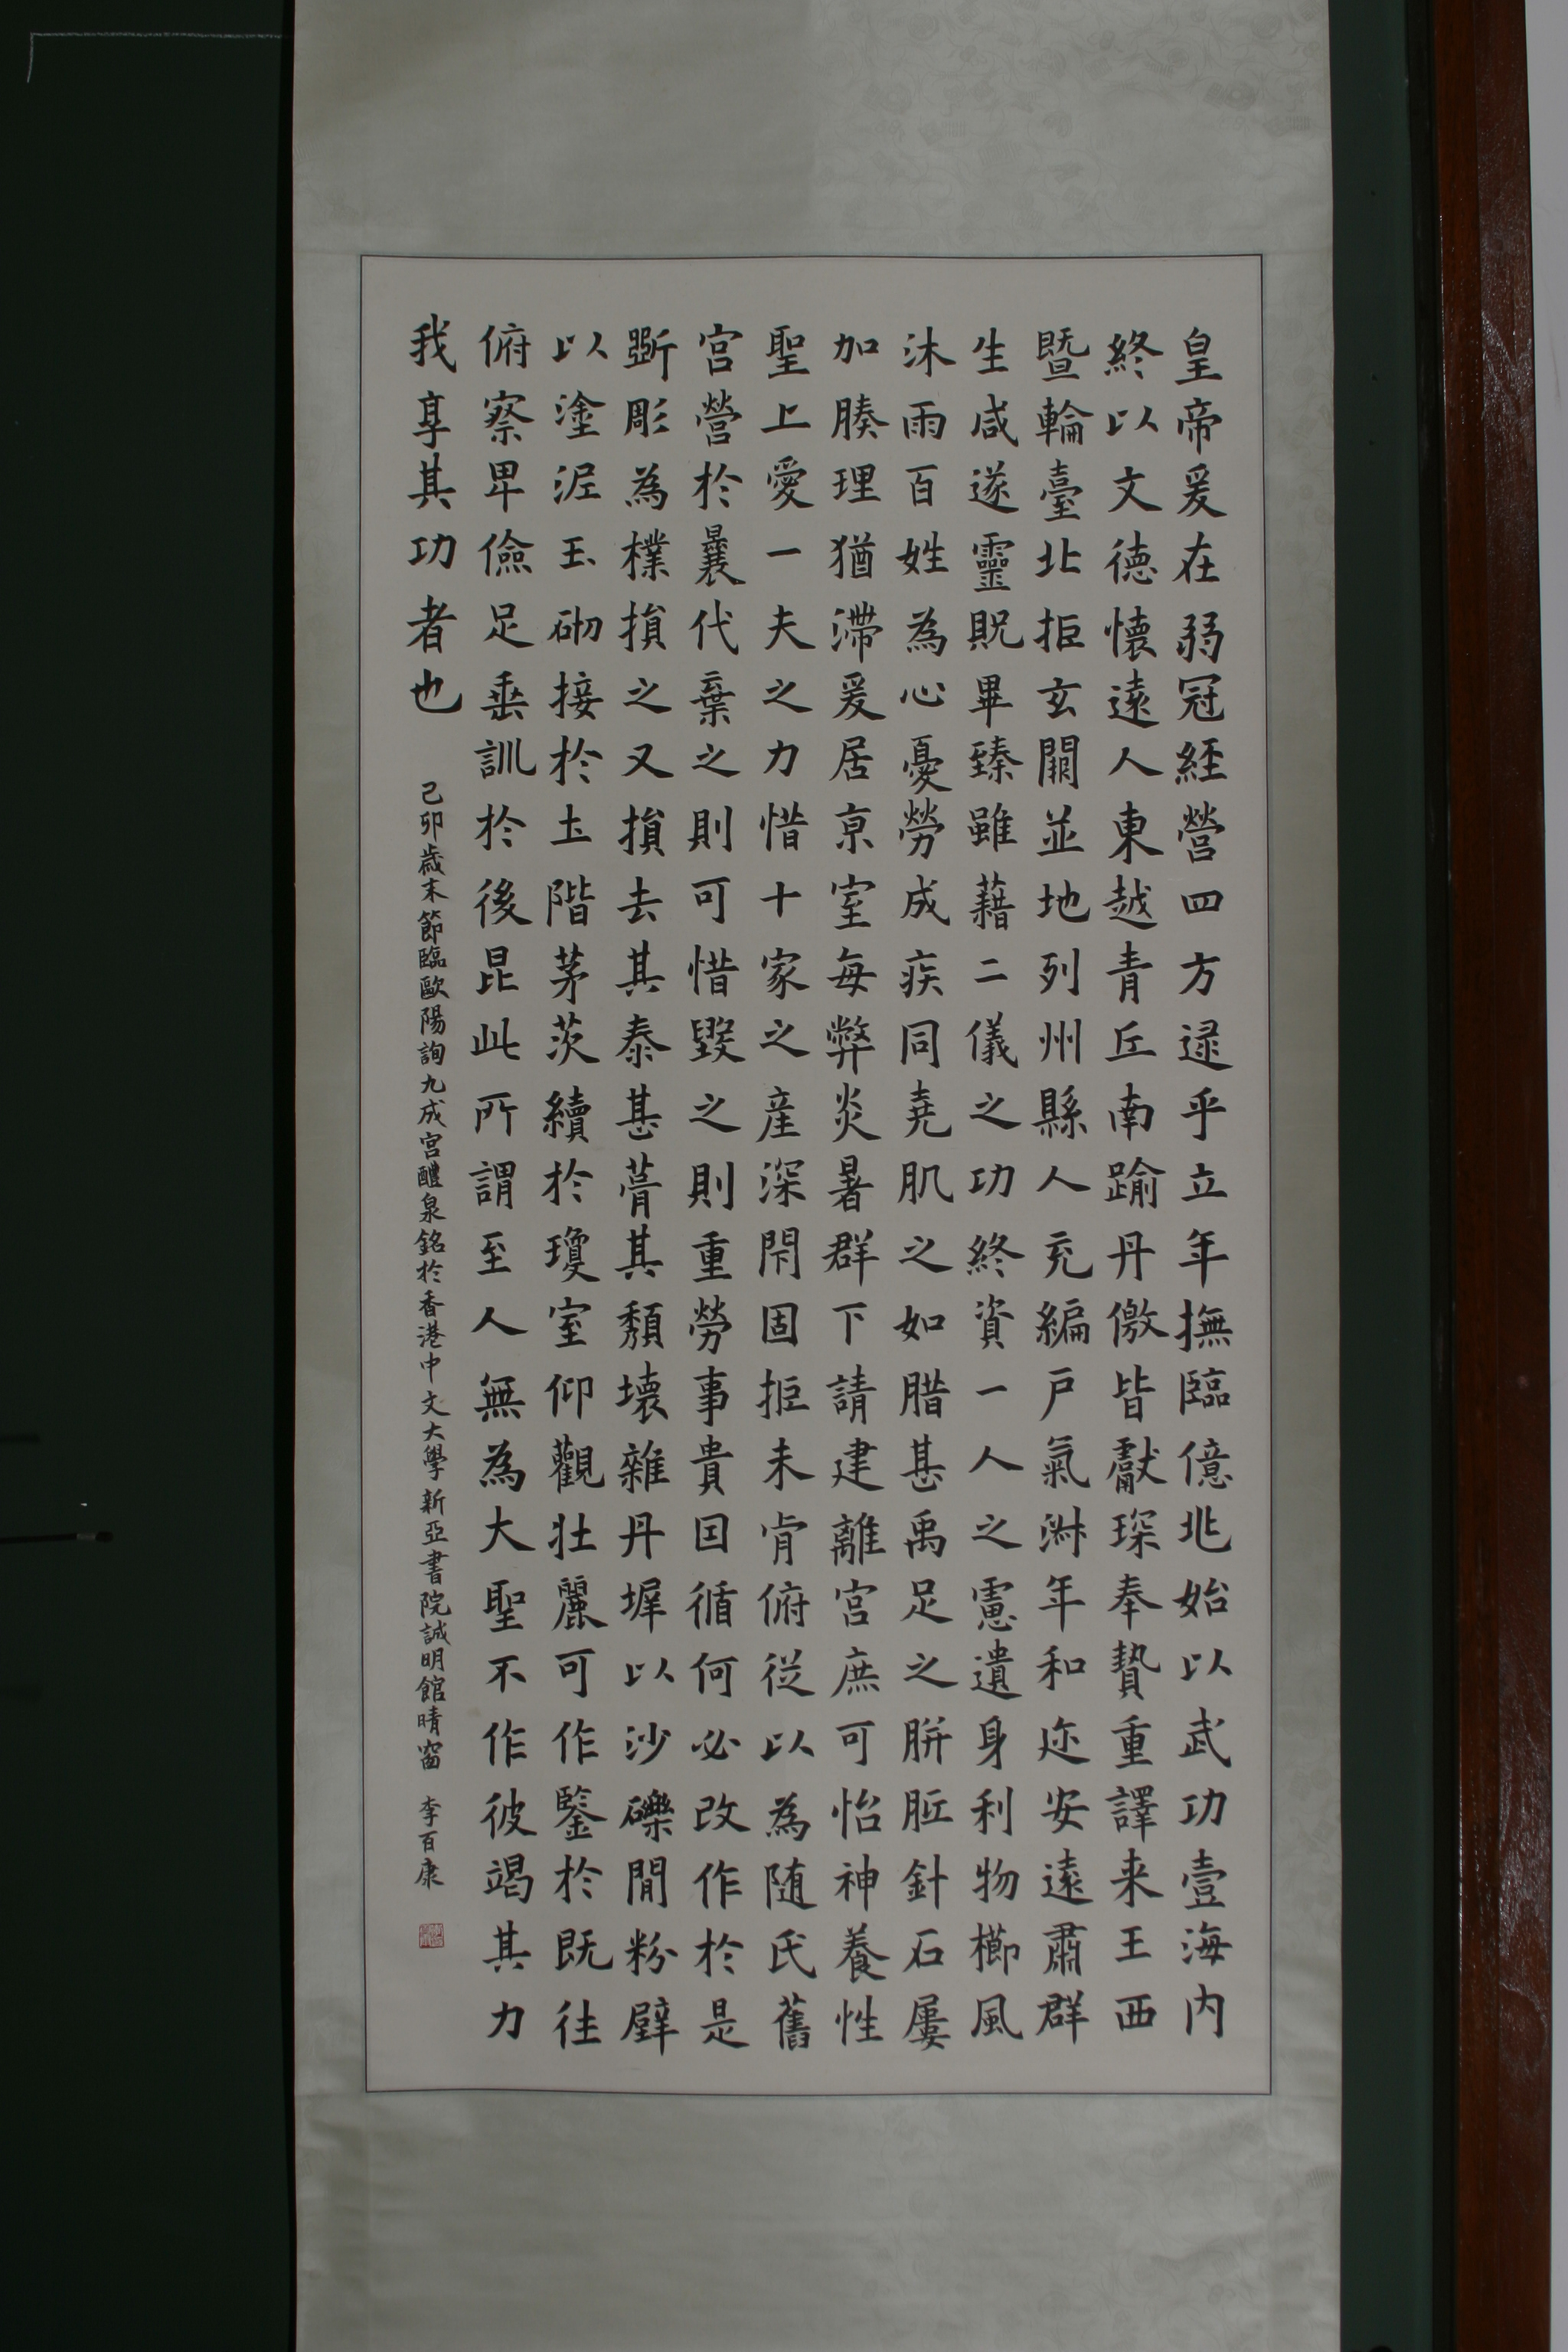 皇帝爰在弱冠經營四方逯乎立年撫臨億兆始以武功壹海内
終以文德懷遠人東越青丘南踰丹儌皆獻琛奉贄重譯来王西
暨輪臺北拒玄闕並地列州縣人充編戸氣淋年和迩安遠肅群
生咸遂靈貺畢臻雖藉二儀之功終資一人之慮遺身利物櫛風
沐雨百姓為心憂勞成疾同堯肌之如腊甚禹足之胼胝針石屢
加腠理猶滯爰居京室每弊炎暑群下請建離宫庶可怡神養性
聖上愛一夫之力惜十家之産深閇固拒未肯俯従以為随氏舊
宫營於曩代棄之則可惜毀之則重勞事貴因循何必改作於是
斲彫為樸損之又損去其泰甚葺其頽壊雜丹墀以沙礫間粉壁
以塗泥玉砌接於土階茅茨續於瓊室仰觀壮麗可作鑒於既往
俯察卑儉足垂訓於後昆此所謂至人無為大聖不作彼竭其力
我享其功者也
己卯歲末節臨歐陽詢九成宫醴泉銘於香港中文大學新亞書院誠明館晴窗 李百康